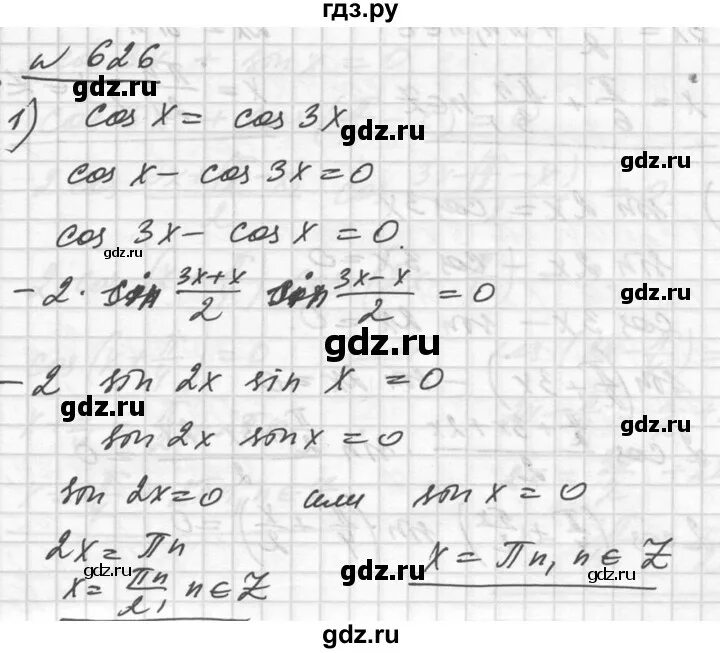 гдз.ру
№ 626
1) cos x = cos 3x
gdz.ru
gdz.ru
cos x - cos 3x = 0
gdz.ru
cos 3x - cos x = 0.
gdz.ru
-2 · sin (3x+x)/2 sin (3x-x)/2 = 0
gdz.ru
gdz.ru
-2 sin 2x sin x = 0
gdz.ru
gdz.ru
sin 2x sin x = 0
sin 2x = 0 или sin x = 0
gdz.ru
2x = πn
x = πn, n ∈ Z
gdz.ru
gdz.ru
x = πn/2, n ∈ Z
gdz.ru
gdz.ru
gdz.ru